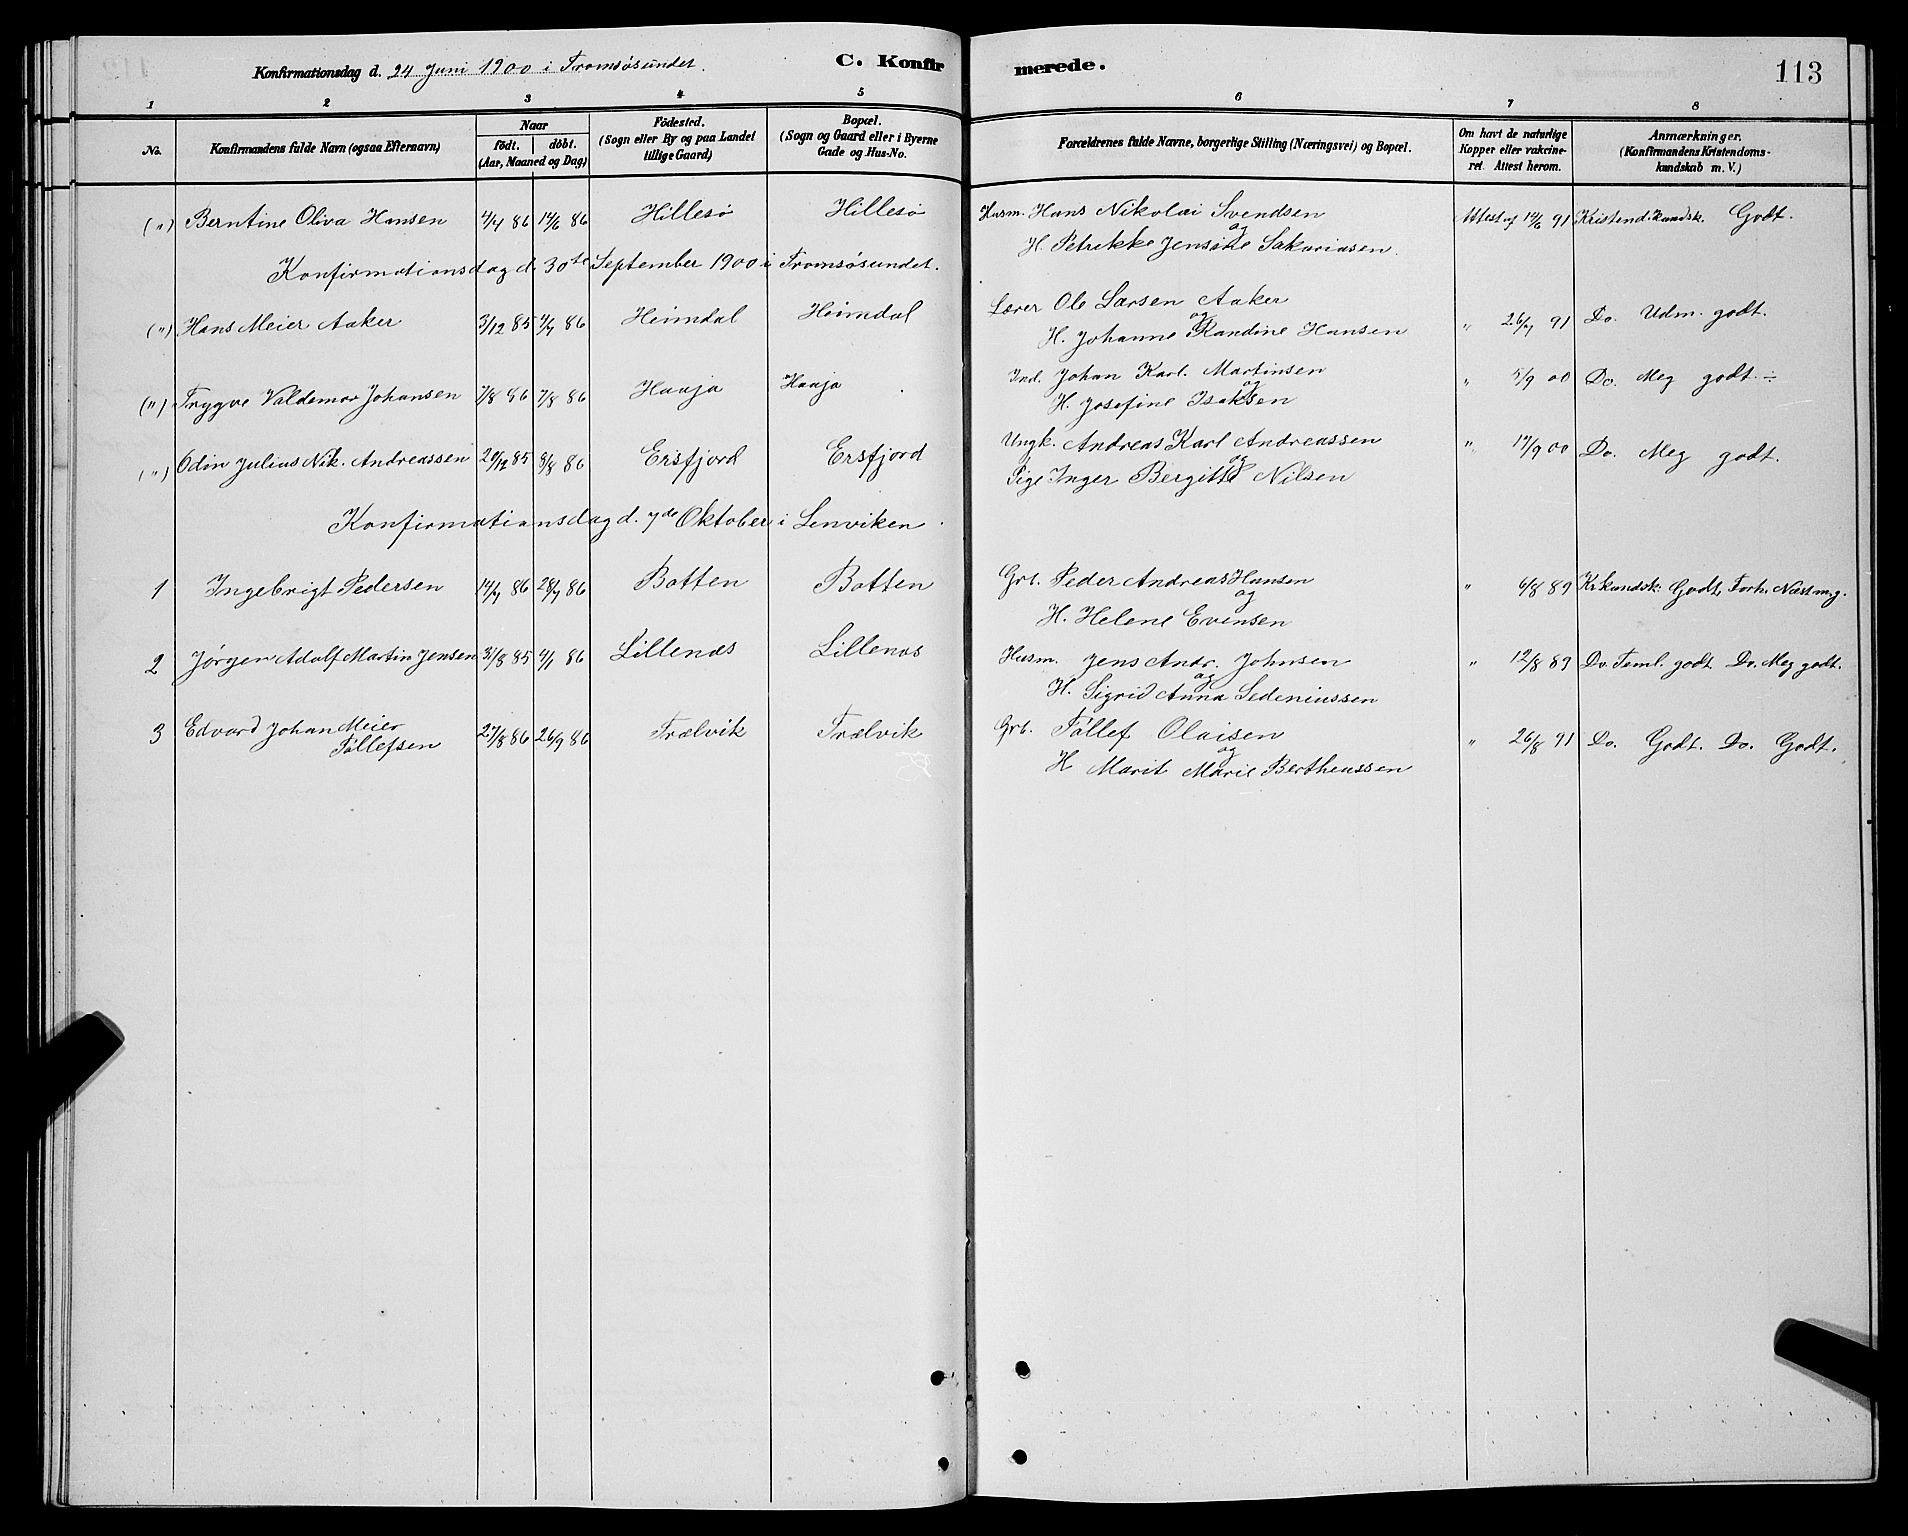 Konfirmationsdag d. 24 Juni 1900 i Tromsøsundet. C. Konfirmerede. 113
1 2 3 4 5 6 7 8
No. Konfirmandens fulde Navn (ogsaa Efternavn) Naar født. døbt. (Aar, Maaned og Dag) Fødested. (Sogn eller By og paa Landet tillige Gaard) Bopæl. (Sogn og Gaard eller i Byerne Gade og Hus-No. Forældrenes fulde Navne, borgerlige Stilling (Næringsvei) og Bopæl. Om havt de naturlige Kopper eller vakcineret. Attest herom. Anmærkninger. (Konfirmandens Kristendomskundskab m. V.)
(") Berntine Oliva Hansen 4/4 86 14/6 86 Hillesø Hillesø Husm. Hans Nikolai Svendsen Attest af 14/6 91 Kristend.kundsk. Godt.
og
H. Petrikke Jensine Sakariasen.
Konfirmationsdag d. 30te September 1900 i Tromsøsundet.
(") Hans Meier Aaker 3/12 85 4/7 86 Heimdal Heimdal Lærer Ole Larsen Aaker " 26/7 91 Do. Udm. godt.
og
H. Johanne Randine Hansen
(") Trygve Valdemar Johansen 7/8 86 7/8 86 Haaja Haaja Ind. Johan Karl. Martinsen " 5/9 00 Do. Meg godt. ÷
og
H. Josefine Isaksen
(") Odin Julius Nik. Andreassen 29/12 85 8/8 86 Ersfjord Ersfjord Ungk. Andreas Karl Andreassen " 17/9 00 Do. Meg godt.
og
Pige Inger Bergitte Nilsen
Konfirmationsdag d. 7de Oktober i Lenviken.
1 Ingebrigt Pedersen 14/7 86 28/7 86 Botten Botten Grb. Peder Andreas Hansen " 6/8 89 Kr.kundsk: Godt, Forh. Næst m. g.
og
H. Helene Evensen
2 Jørgen Adolf Martin Jensen 31/8 85 4/1 86 Lillenæs Lillenæs Husm. Jens Andr. Johnsen " 12/8 89 Do. Teml. godt Do. Meg godt.
og
H. Sigrid Anna Sedeniussen
3 Edvard Johan Meier Tollefsen 27/8 86 26/9 86 Trælvik Trælvik Grb. Tollef Olaisen " 26/8 91 Do. Godt. Do. Godt.
og
H Marit Marie Bertheussen